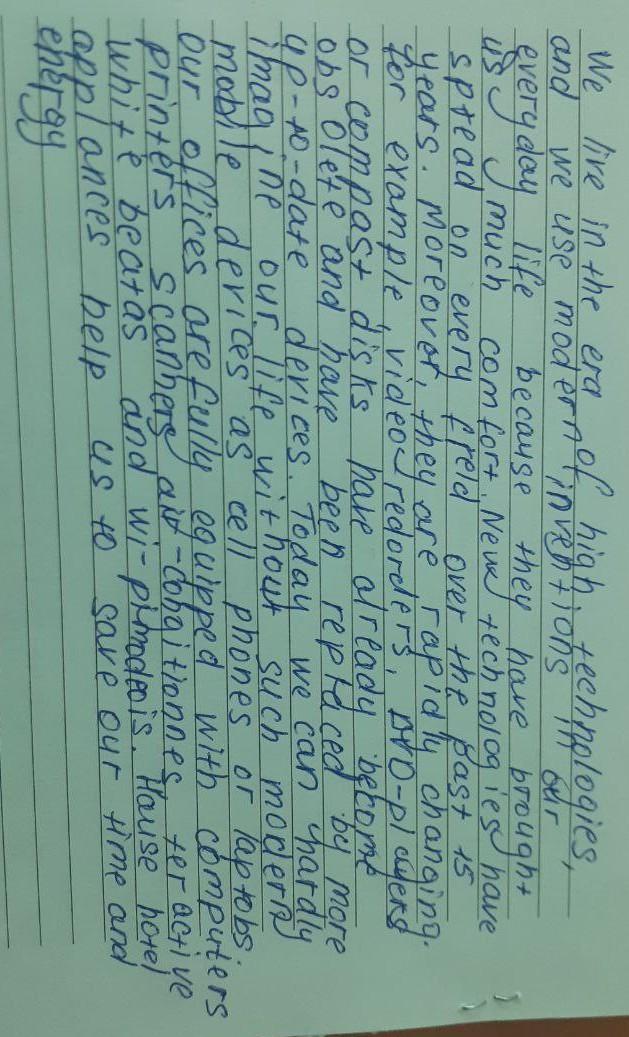 We live in the era of high technologies,
and we use modern inventions in our
everyday life because they have brought
us much comfort. New technologies have
spread on every field over the past 15
years. Moreover, they are rapidly changing.
for example, video redorders, DVD-players
or compast disks have already become
obsolete and have been replaced by more
up-to-date devices. Today we can hardly
imagine our life without such modern
mobile devices as cell phones or laptobs.
our offices are fully equipped with computers
printers scanners air-conditionnes, teractive
white beatas and wi-pimodeis. House hotel
applances help us to save our time and
energy